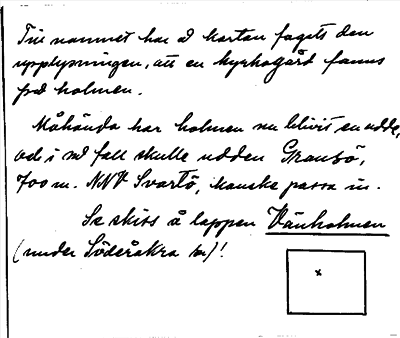 Till namnet har å kartan fogats den
upplysningen, att en kyrkogård funnits
på holmen.
Måhända har holmen nu blivit en udde,
och i så fall skulle udden Granö,
700 m. NNV Svartö, kanske passa in.
Se skiss å lappen Vänholmen
(under Söderåkra sn)!
x